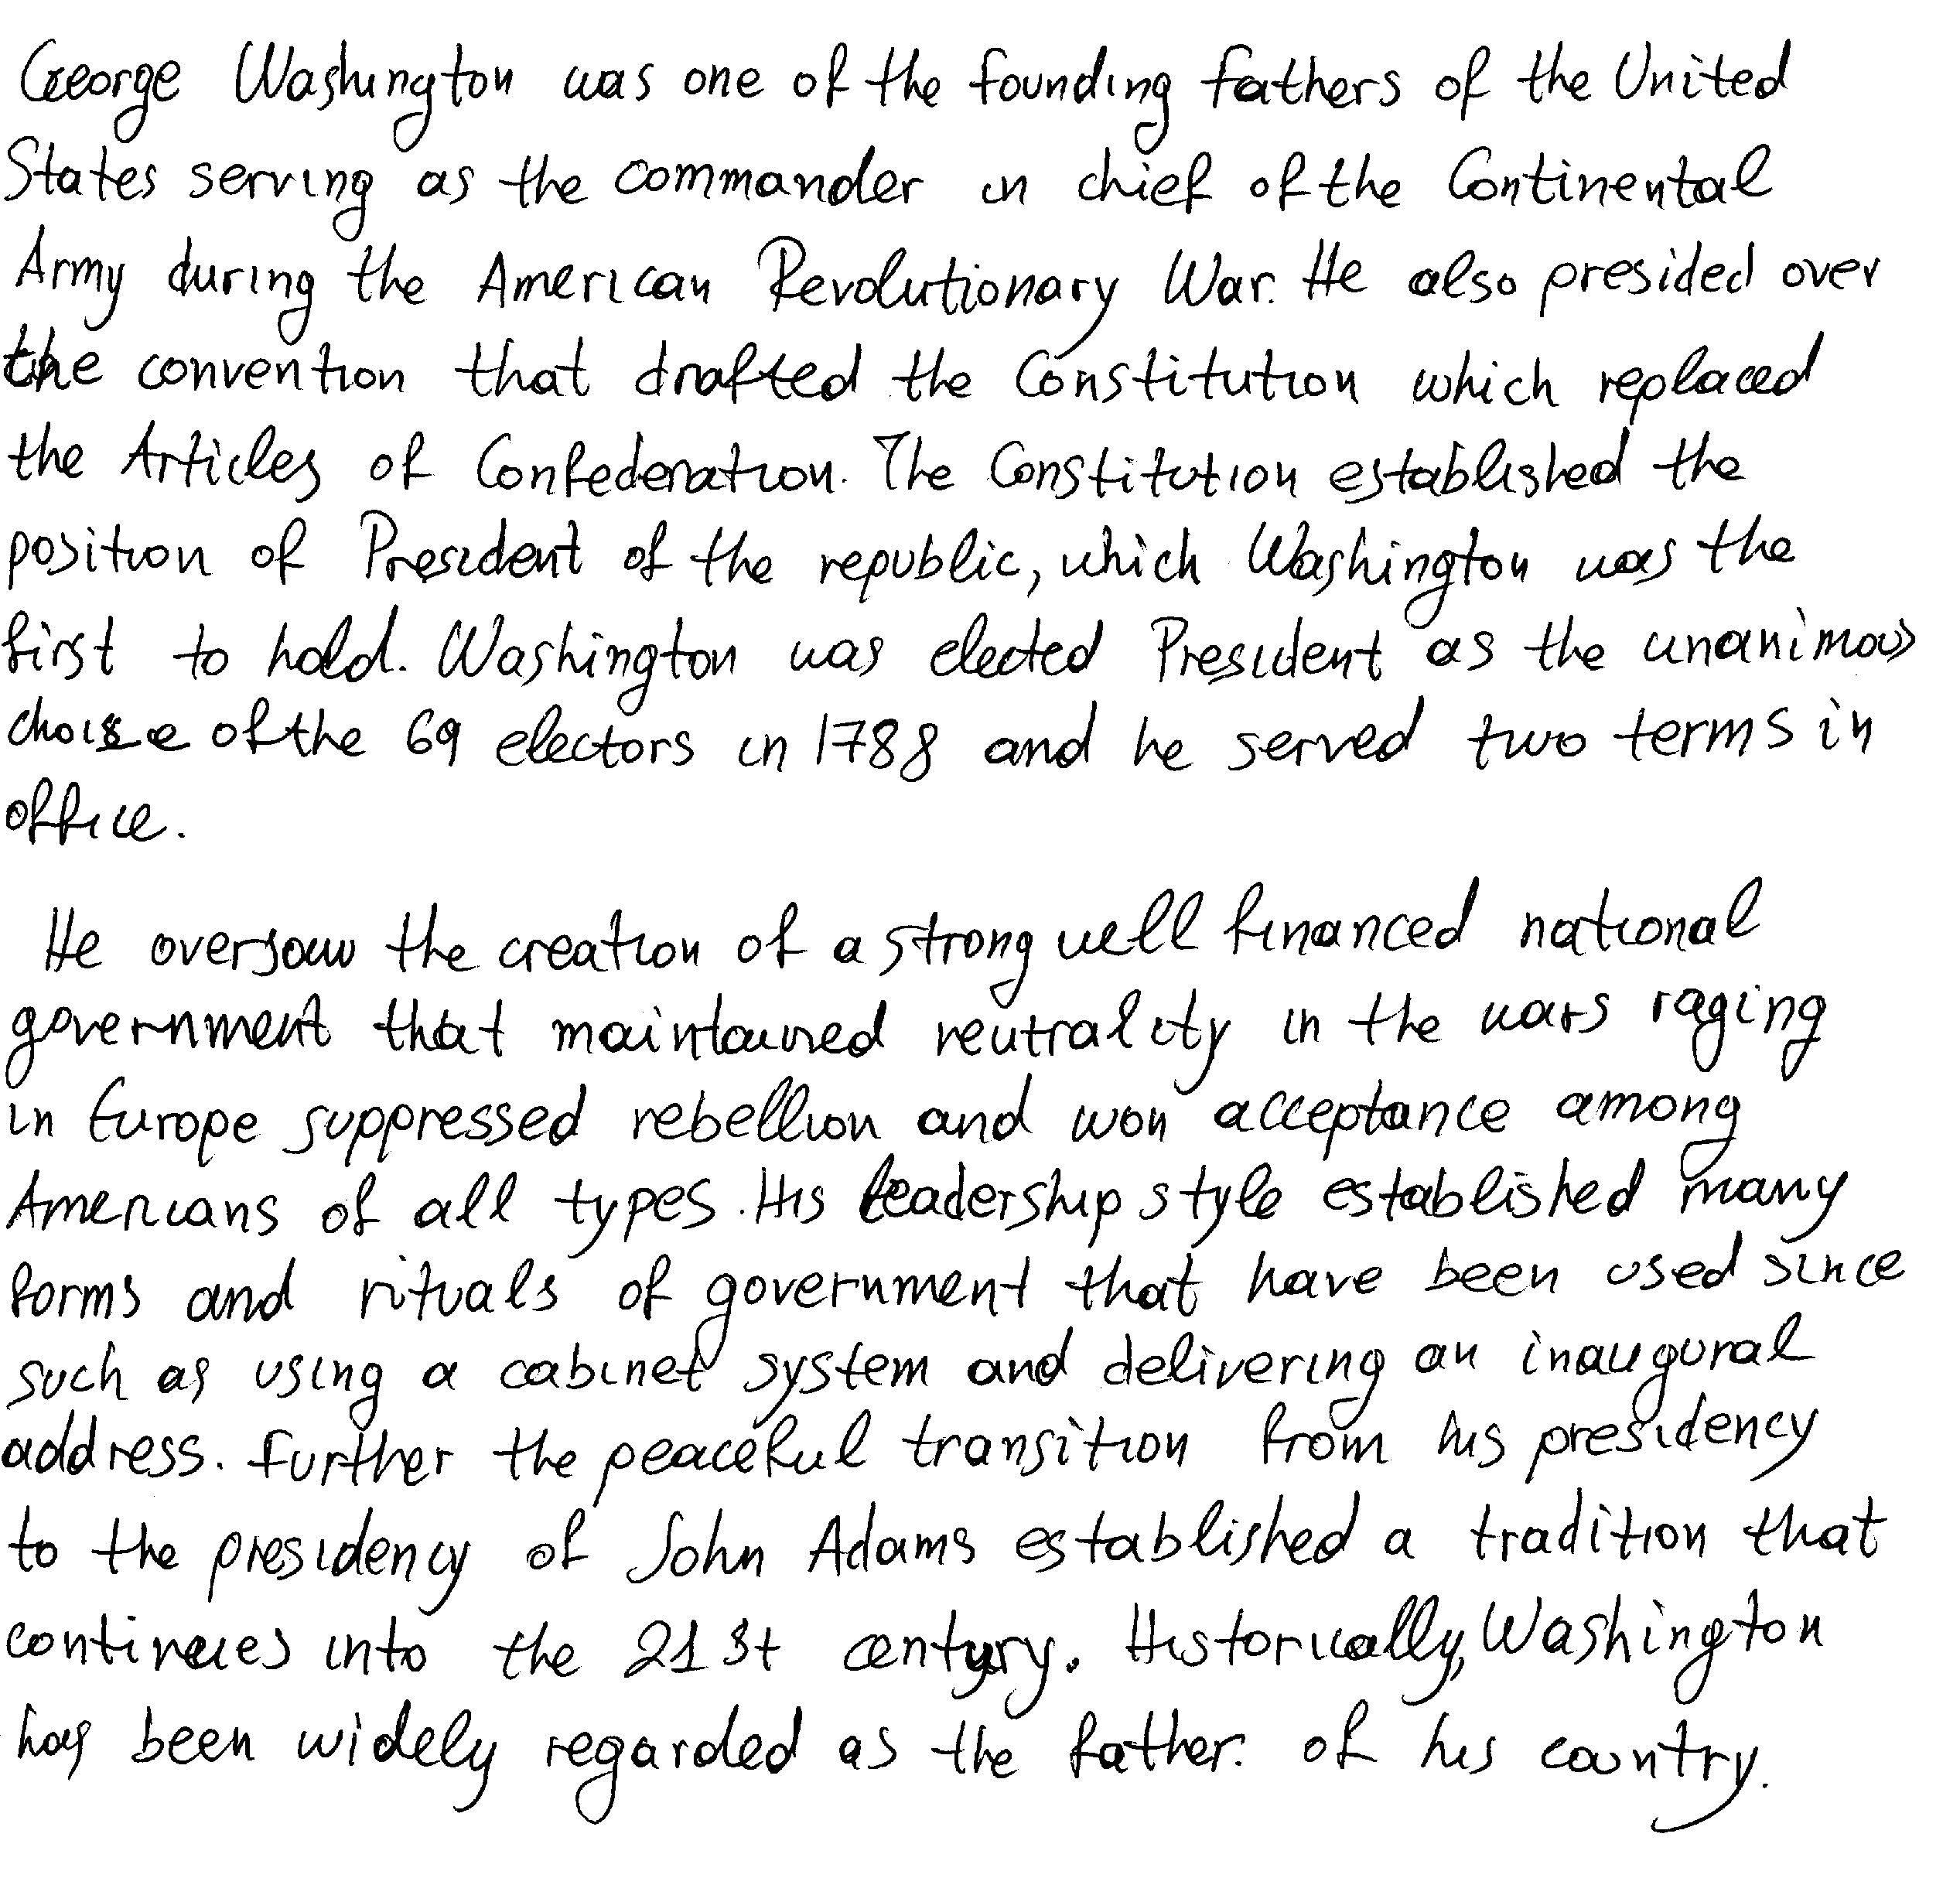 George Washington was one of the founding fathers of the United
States serving as the commander in chief of the Continental
Army during the American Revolutionary War. He also presided over
the convention that drafted the Constitution which replaced
the Articles of Confederation. The Constitution established the
position of President of the republic, which Washington was the
first to hold. Washington was elected President as the unanimous
choise of the 69 electors in 1788 and he served two terms in
office.
He oversaw the creation of a strong well financed national
government that maintained neutrality in the wars raging
in Europe suppressed rebellion and won acceptance among
Americans of all types. His leadership style established many
forms and rituals of government that have been used since
such as using a cabinet system and delivering an inaugural
address. Further the peaceful transition from his presidency
to the presidency of John Adams established a tradition that
continues into the 21st century. Historically, Washington
has been widely regarded as the father. of his country.